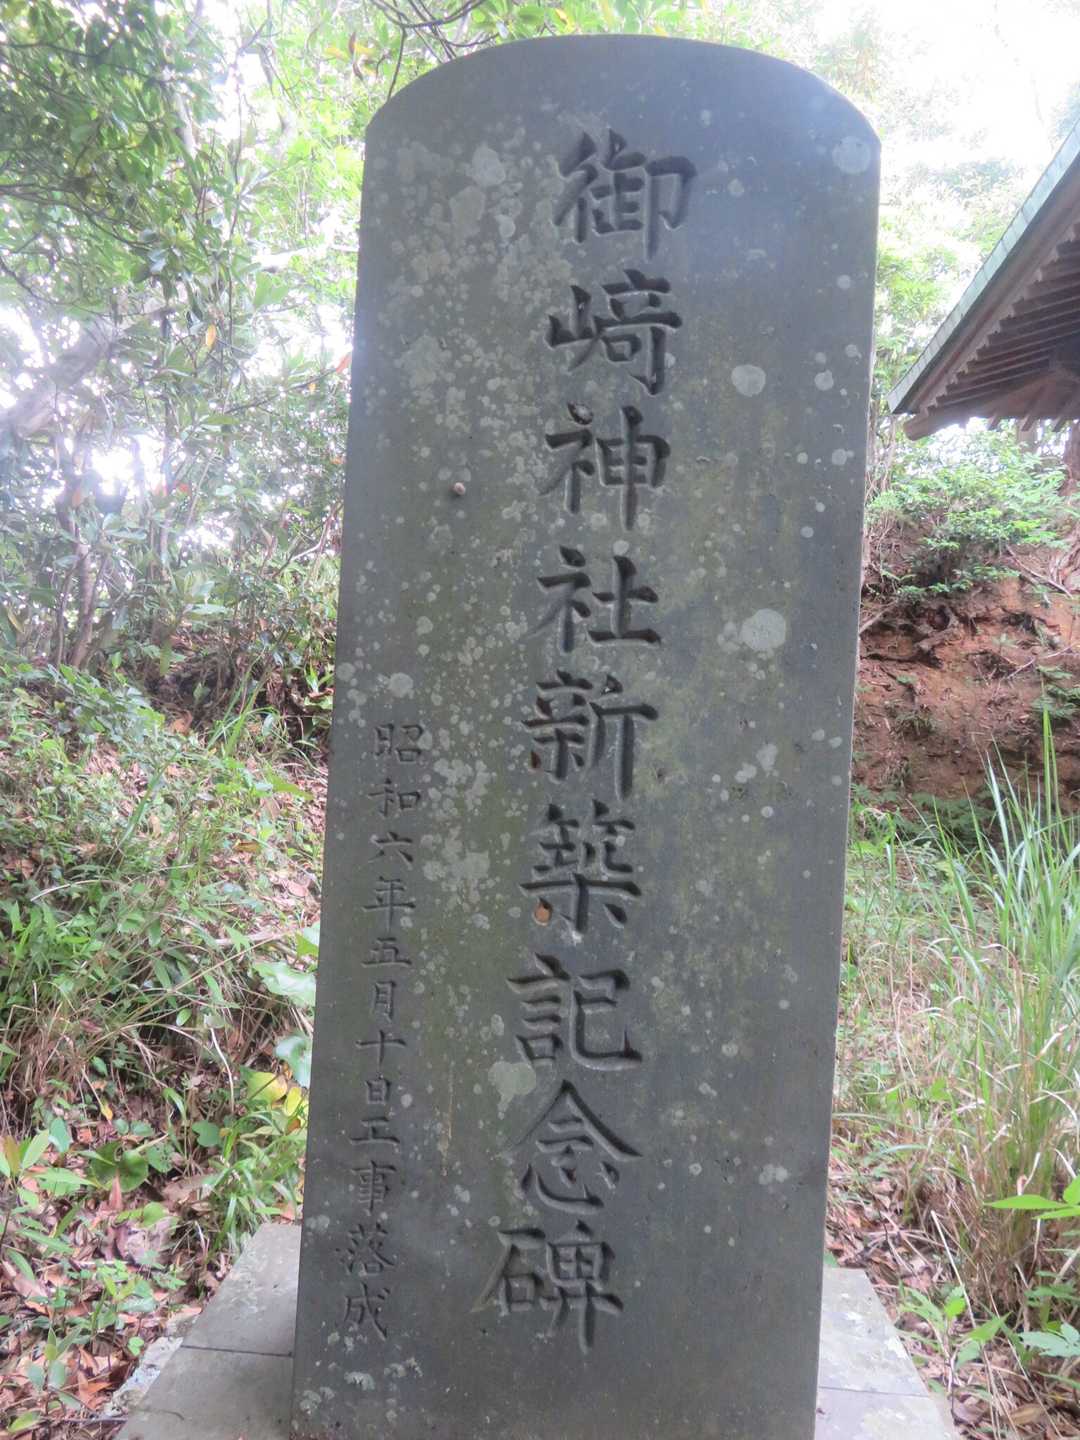 御﨑神社新築記念碑
昭和六年五月十日工事落成